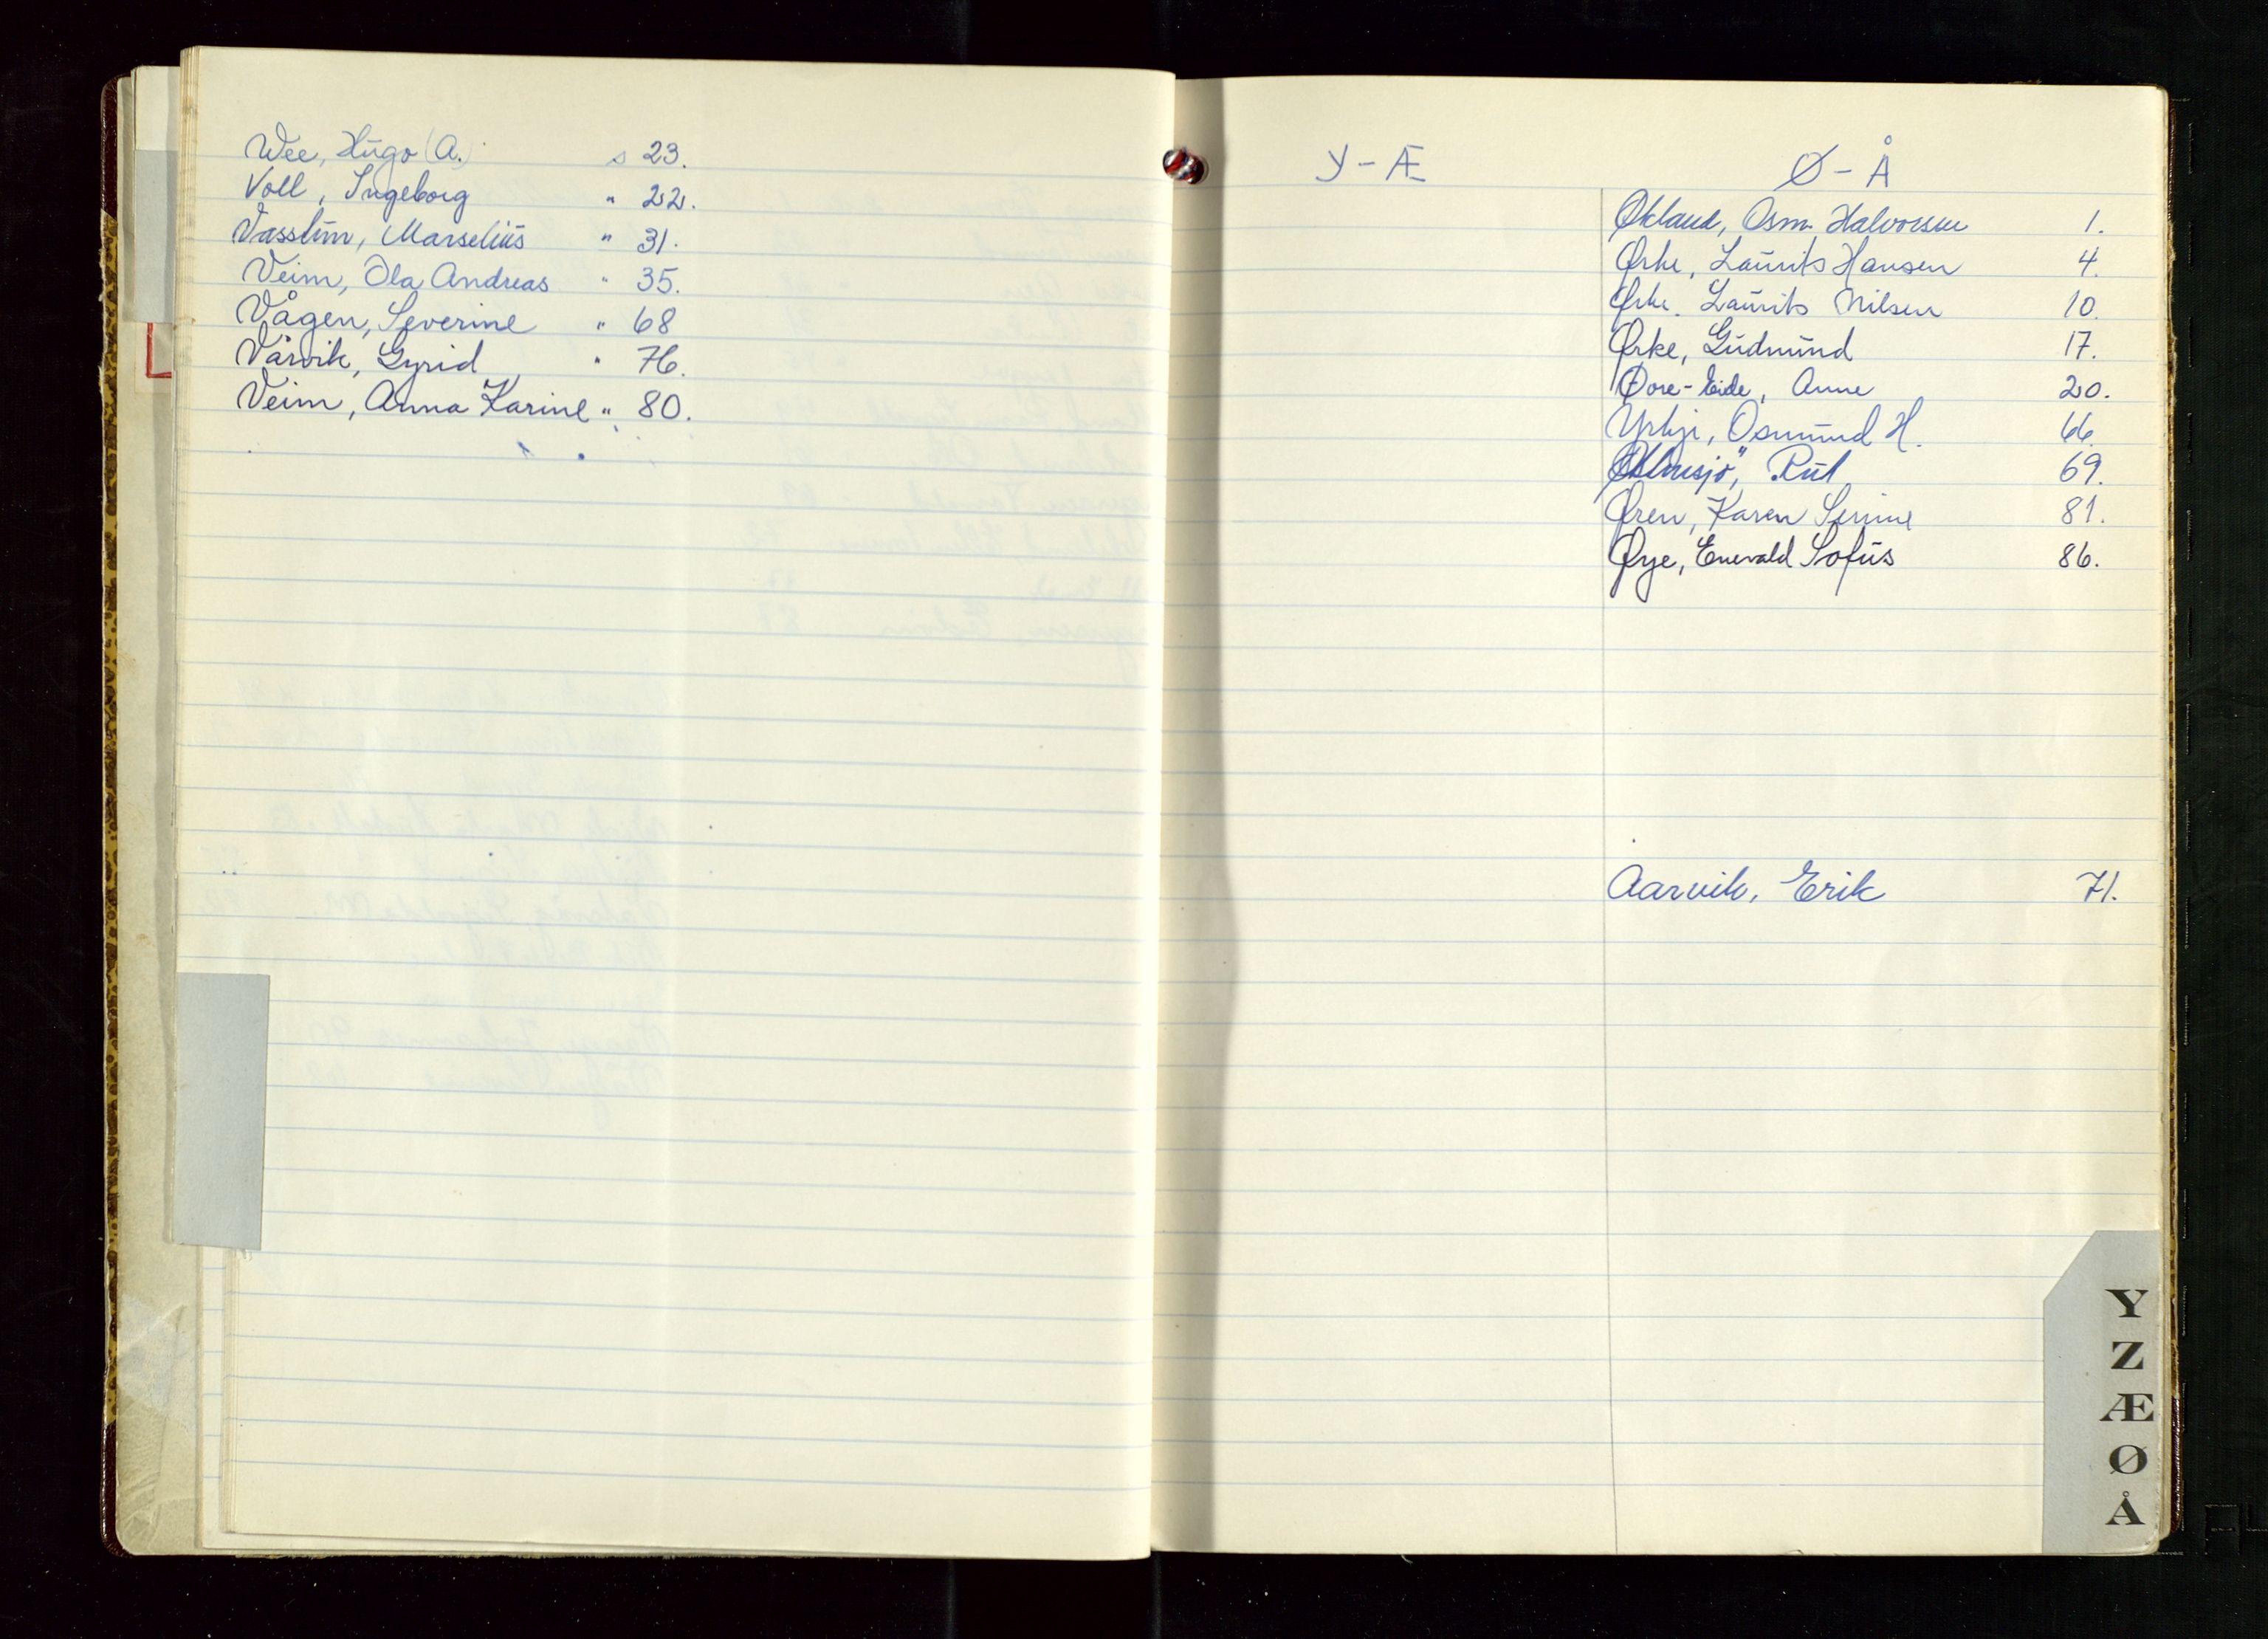 Wee, Hugo (A.) s 23.
Voll, Ingeborg " 22.
Vasstun, Marselius " 31.
Veim, Ola Andreas " 35.
Vågen, Severine " 68
Vårvik, Gyrid " 76.
Veim, Anna Karine " 80.
Y - Æ
Ø - Å
Økland, Osm. Halvorsen 1.
Ørke, Laurits Hansen 4.
Ørke, Laurits Nilsen 10.
Ørke, Gudmund 17.
Øvre-Eide, Anne 20.
Yrkje, Osmund H. 66.
Rut 69.
Øren, Karen Serine 81.
Øye, Enevald Sofus 86.
Aarvik, Erik 71.
Y
Z
Æ
Ø
Å